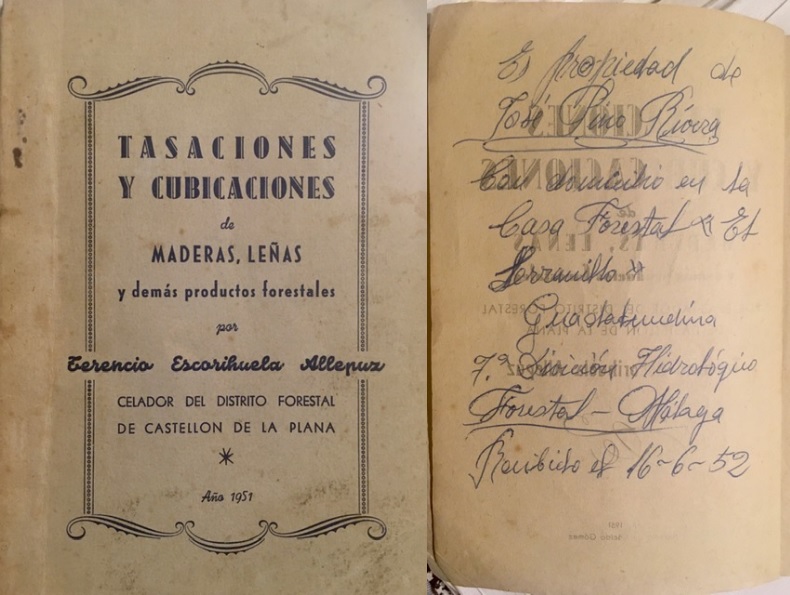 TASACIONES
Y CUBICACIONES
de
MADERAS, LEÑAS
y demás productos forestales
por
Terencio Escorihuela Allepuz
CELADOR DEL DISTRITO FORESTAL
DE CASTELLON DE LA PLANA
*
Año 1951
Es propiedad de
José Pino Rivera
Con domicilio en la
Casa Forestal "El
Serranillo"
Guadalmedina
7.ª División Hidrológico
Forestal - Málaga
Recibido el 16-6-52